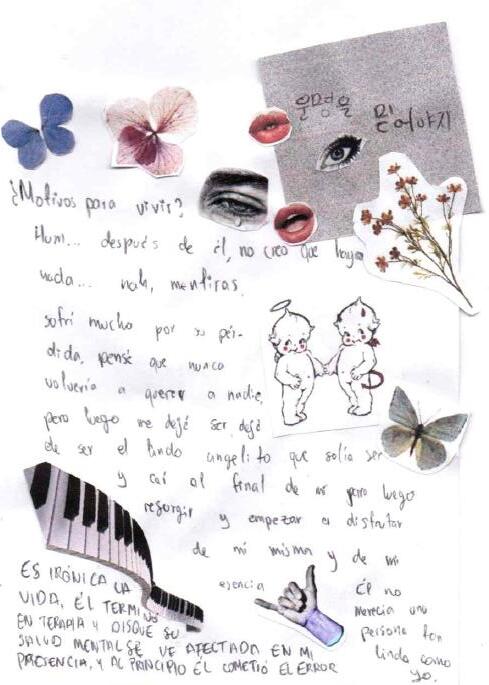 운명을
믿어야지
¿Motivos para vivir?
Hum... después de él, no creo que haya
nada... nah, mentiras.
sofrí mucho por su pér-
dida, pensé que nunca
volvería a querer a nadie,
pero luego me dejé ser, dejé
de ser el lindo angelito que solía ser
y caí al final de mí pero luego
resurgir y empezar a disfrutar
de mí misma y de mi
esencia
Él no
merecía una
persona tan
linda como
yo.
ES IRÓNICA LA
VIDA, ÉL TERMINÓ
EN TERAPIA Y DISQUE SU
SALUD MENTAL SE VE AFECTADA EN MI
PRESENCIA, Y AL PRINCIPIO ÉL COMETIÓ EL ERROR